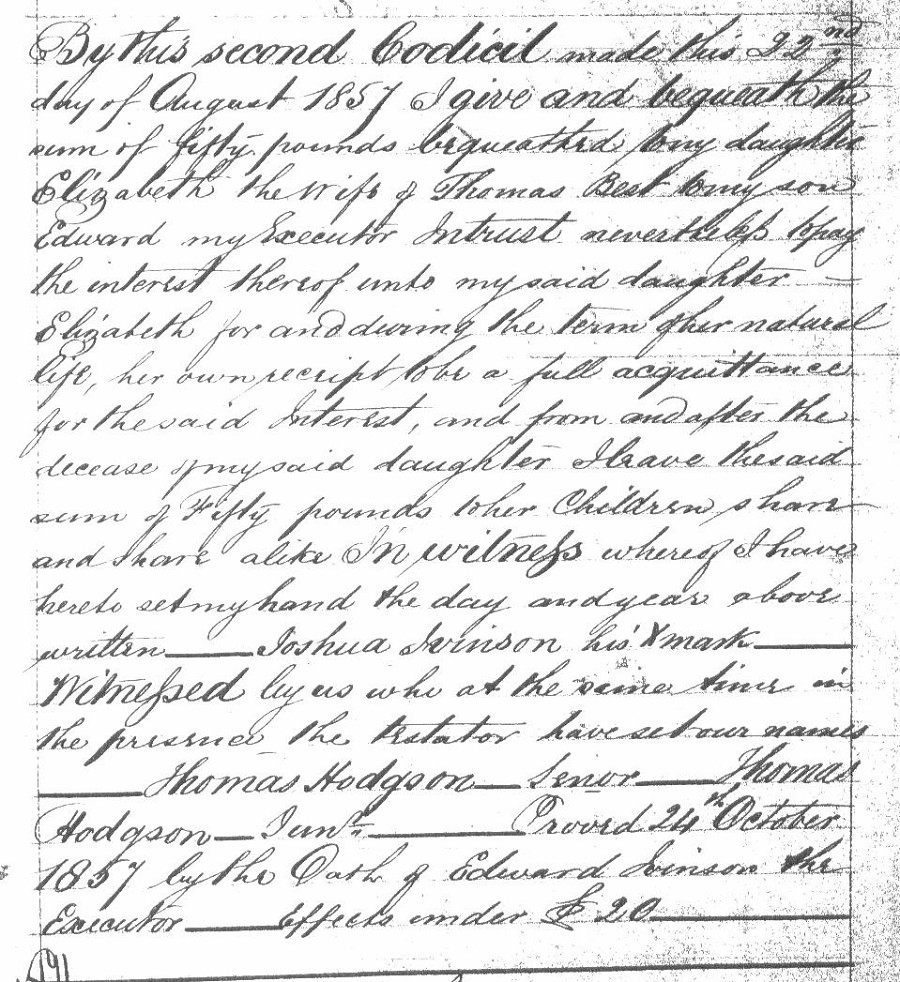 By this second Codicil made this 22nd
day of August 1857 I give and bequeath the
sum of fifty pounds bequeathed to my daughter
Elizabeth the Wife of Thomas Best to my son
Edward my Executor Intrust nevertheless to pay
the interest thereof unto my said daughter
Elizabeth for and during the term of her natural
life, her own receipt to be a full acquittance
for the said Interest, and from and after the
decease of my said daughter I leave the said
sum of Fifty pounds to her Children share
and share alike In witness whereof I have
hereto set my hand the day and year above
written — Joshua Ivinson his X mark —
Witnessed by us who at the same time in
the presence the testator have set our names
— Thomas Hodgson — Senor — Thomas
Hodgson — Junr. — Proved 24th October
1857 by the Oath of Edward Ivinson the
Executor — Effects under £20 —
191